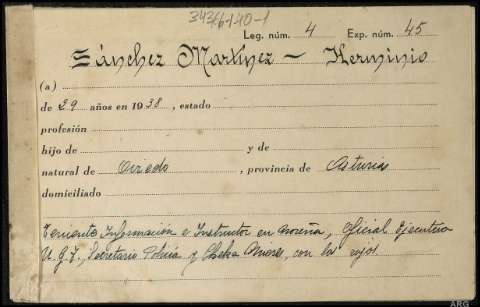 3436-140-1
Leg. núm. 4 Exp. núm. 45
Sánchez Martínez - Herminio
(a)
de 29 años en 1938, estado
profesión
hijo de y de
natural de Oviedo, provincia de Asturias
domiciliado
Teniente Información e Instructor en Noreña, Oficial Ejecutiva
U.G.T., Secretario Policía y Cheka Mieres, con los rojos.
ARG